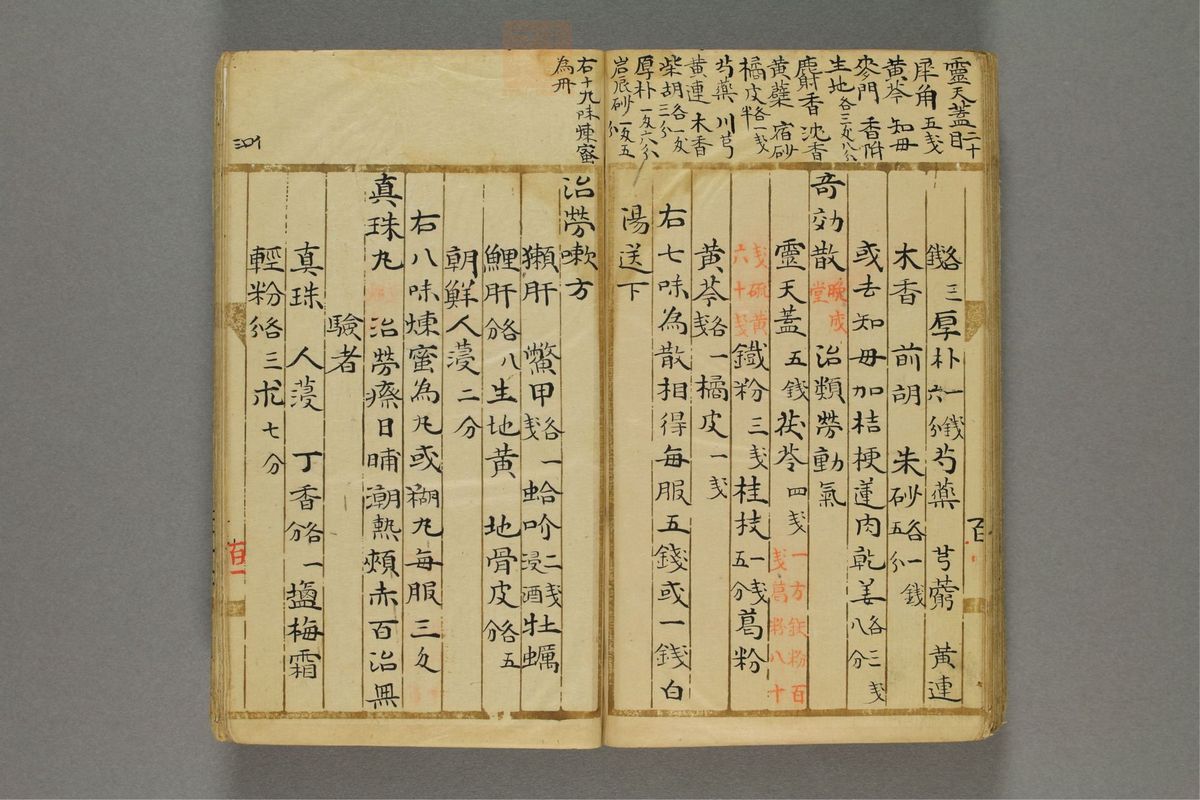 靈天蓋目二十
犀角五戔
黄芩 知母
麥門 香附
生地各三匁八分
麝香 沈香
黄蘗 宿砂
橘皮各一戔半
芍薬 川芎
黄連 木香
柴胡各一匁三分
厚朴一匁六分
岩辰砂一匁五分
各三錢 厚朴一錢六分 芍藥 芎藭 黄連
木香 前胡 朱砂各一錢五分
或去知母加桔梗蓮肉乾姜各三戔八分
奇効散 晩成堂 治類勞動氣
靈天蓋五錢 茯苓四戔 一方鉄粉百戔葛粉八十
戔硫黄六十戔 鐵粉三戔 桂枝一戔五分 葛粉
黄芩各一戔 橘皮一戔
右七味為散相得毎服五錢或一錢白
湯送下
右十九味煉蜜
為丹
治勞嗽方
獺肝 鱉甲各一戔 蛤吤二戔浸酒 牡蠣
鯉肝各八分 生地黄 地骨皮各五分
朝鮮人蓡二分
右八味煉蜜為丸或糊丸毎服三匁
真珠丸 治勞瘵日晡潮熱頰赤百治無
驗者
真珠 人蓡 丁香各一分 鹽梅霜
輕粉各三分 朮七分
百一